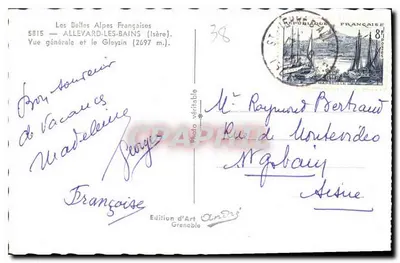 Les Belles Alpes Françaises
5815 — ALLEVARD-LES-BAINS (Isère).
Vue générale et le Gleysin (2697 m.).
38
Bon souvenir
de vacances
Madeleine
Georges
Françoise
Edition d'Art André
Grenoble
REPUBLIQUE FRANÇAISE
8F
Mr Raymond Bertrand
Rue de Montevideo
St Gobain
Aisne
CPAPHIL